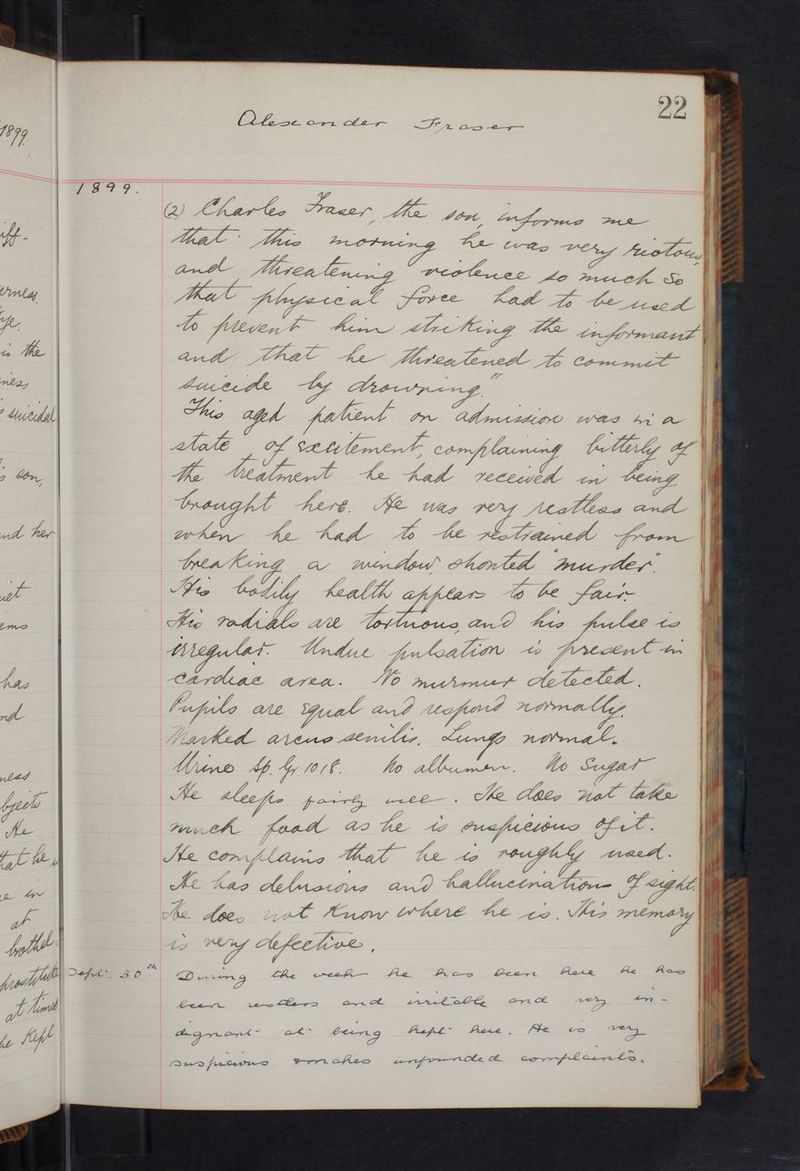 22
Alexander Fraser
1899.
1899.
(2) Charles Fraser, the son, informs me
that this morning he was very riotous,
and threatening violence so much so
that physical force had to be used
to prevent him striking the informant
and that he threatened to commit
suicide by drowning."
This aged patient on admission was in a
state of excitement, complaining bitterly of
the treatment he had received in being
brought here. He was very restless and
when he had to be restrained from
breaking a window, shouted "murder".
His bodily health appears to be fair.
His radials are tortuous, and his pulse is
irregular. Undue pulsation is present in
cardiac area. No murmur detected.
Pupils are equal and respond normally.
Marked arcus senilis. Lungs normal.
Urine Sp. Gr 1018. No albumen. No Sugar
He sleeps fairly well. He does not take
much food as he is suspicious of it.
He complains that he is roughly used.
He has delusions and hallucinations of sight.
He does not know where he is. His memory
is very defective.
Sept. 30th During the week he has been here he has
been restless and irritable and very in-
dignant at being kept here. He is very
suspicious & makes unfounded complaints.
is the
suicidal
son,
and her
has
He
that he
in
at
brothel
prostitute
at times
Kept